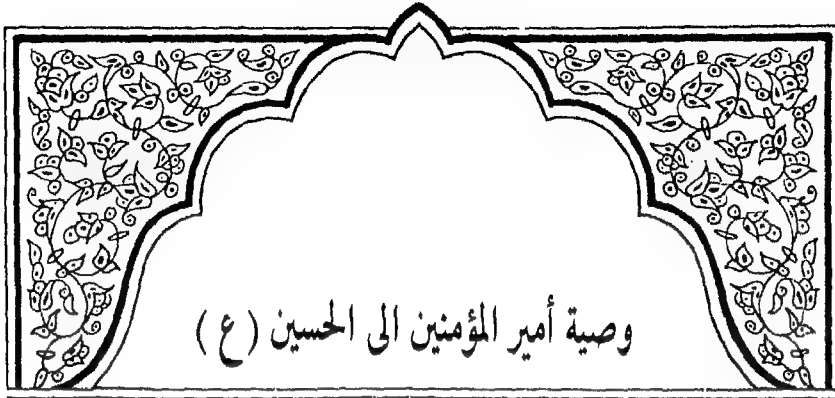 وصية أمير المؤمنين الى الحسين ( ع )